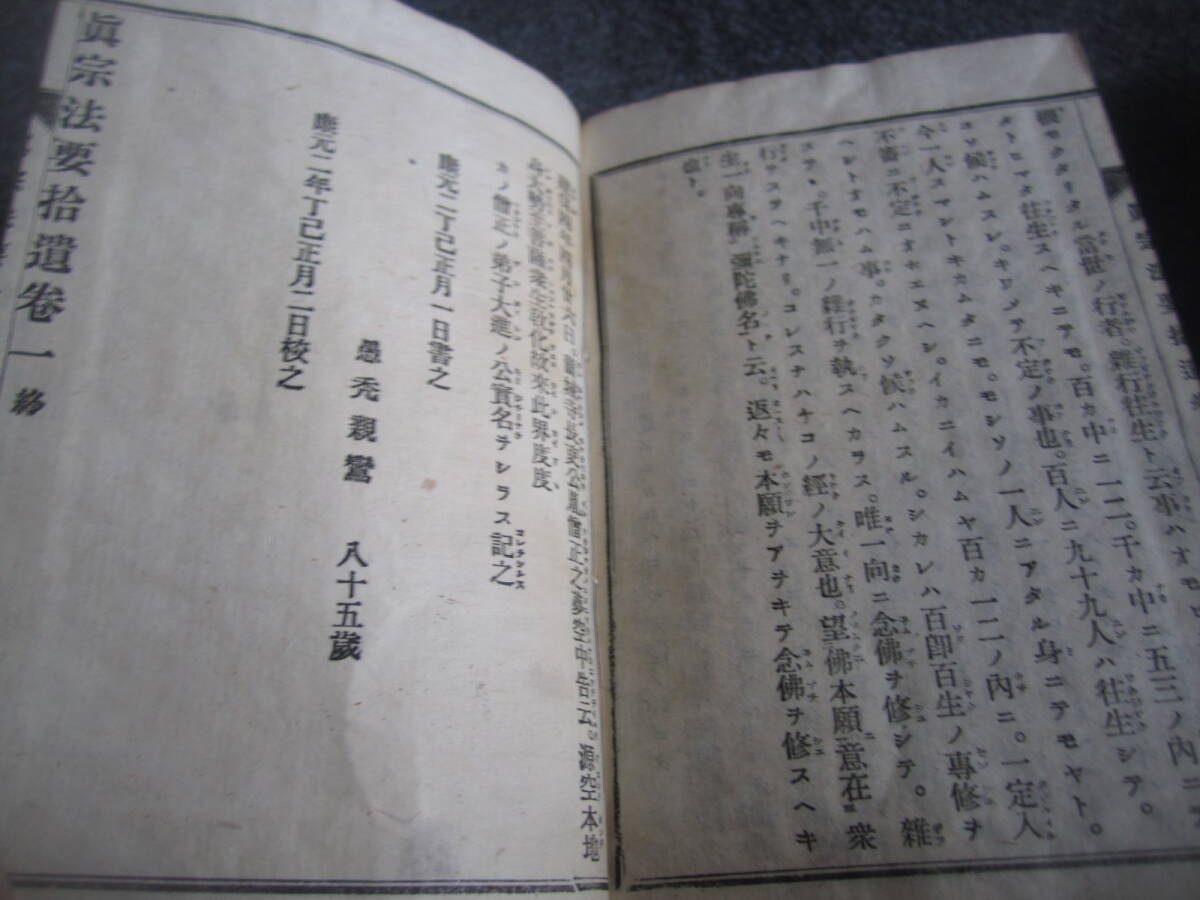 當世ノ行者。雜行往生ト云事ハ
タトヒマタ往生スヘキニテモ。百カ中ニ一二。千カ中ニ五三ノ內ニ
コソ候ハムスレ。キワメテ不定ノ事也。百人ニ九十九人ハ往生シテ。
今一人スマシトキカムタニモ。モシソノ一人ニアタル身ニテモヤト。
不審ニ不定ニオホエヌヘシ。イカニイハムヤ百カ一二ノ內ニ。一定人
ヘシトオモハム事。カタクソ候ハムスル。シカレハ百卽百生ノ專修ヲ
ステヽ。千中無一ノ雜行ヲ執スヘカラス。唯一向ニ念佛ヲ修シテ。雜
行ヲスツヘキナリ。コレスナハチコノ經ノ大意也。望佛本願意在衆
生一向專稱彌陀佛名ト云。返々モ本願ヲアオキテ念佛ヲ修スヘキ
也ト。
長吏公胤僧正之夢空中告云。源空本地
身大勢至菩薩衆生敎化故來此界度度
カノ僧正ノ弟子大進ノ公實名ヲシラス記之
康元二丁巳正月一日書之
愚禿親鸞 八十五歲
康元二年丁巳正月二日校之
眞宗法要拾遺卷一終